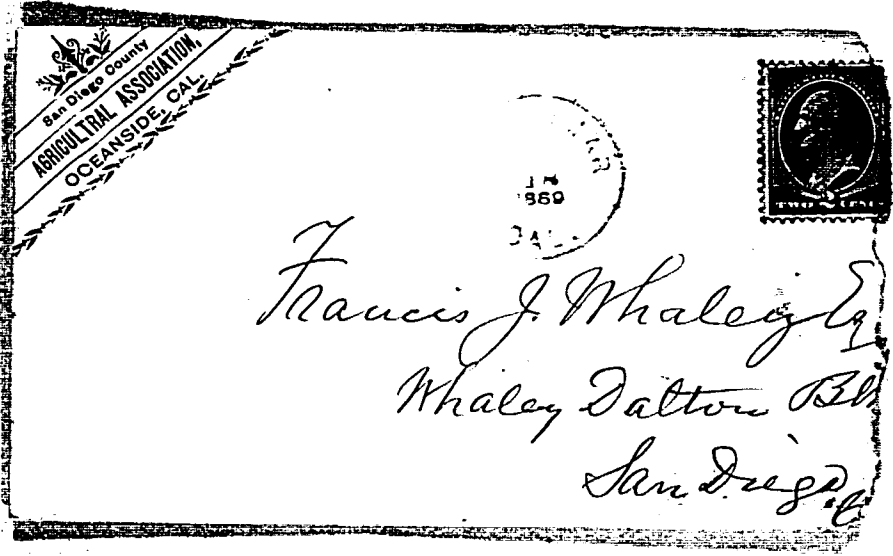 San Diego County
AGRICULTRAL ASSOCIATION,
OCEANSIDE, CAL.
1869
CAL
TWO 2 CENT
Francis J. Whaley Esq
Whaley Dalton Bl
San Diego